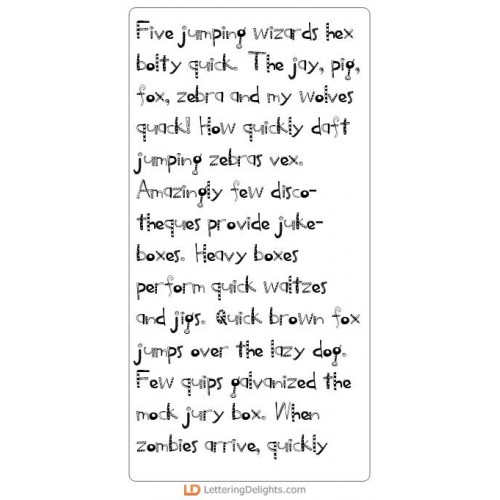 Five jumping wizards hex
bolty quick. The jay, pig,
fox, zebra and my wolves
quack! How quickly daft
jumping zebras vex.
Amazingly few disco-
theques provide juke-
boxes. Heavy boxes
perform quick waltzes
and jigs. Quick brown fox
jumps over the lazy dog.
Few quips galvanized the
mock jury box. When
zombies arrive, quickly
LD LetteringDelights.com